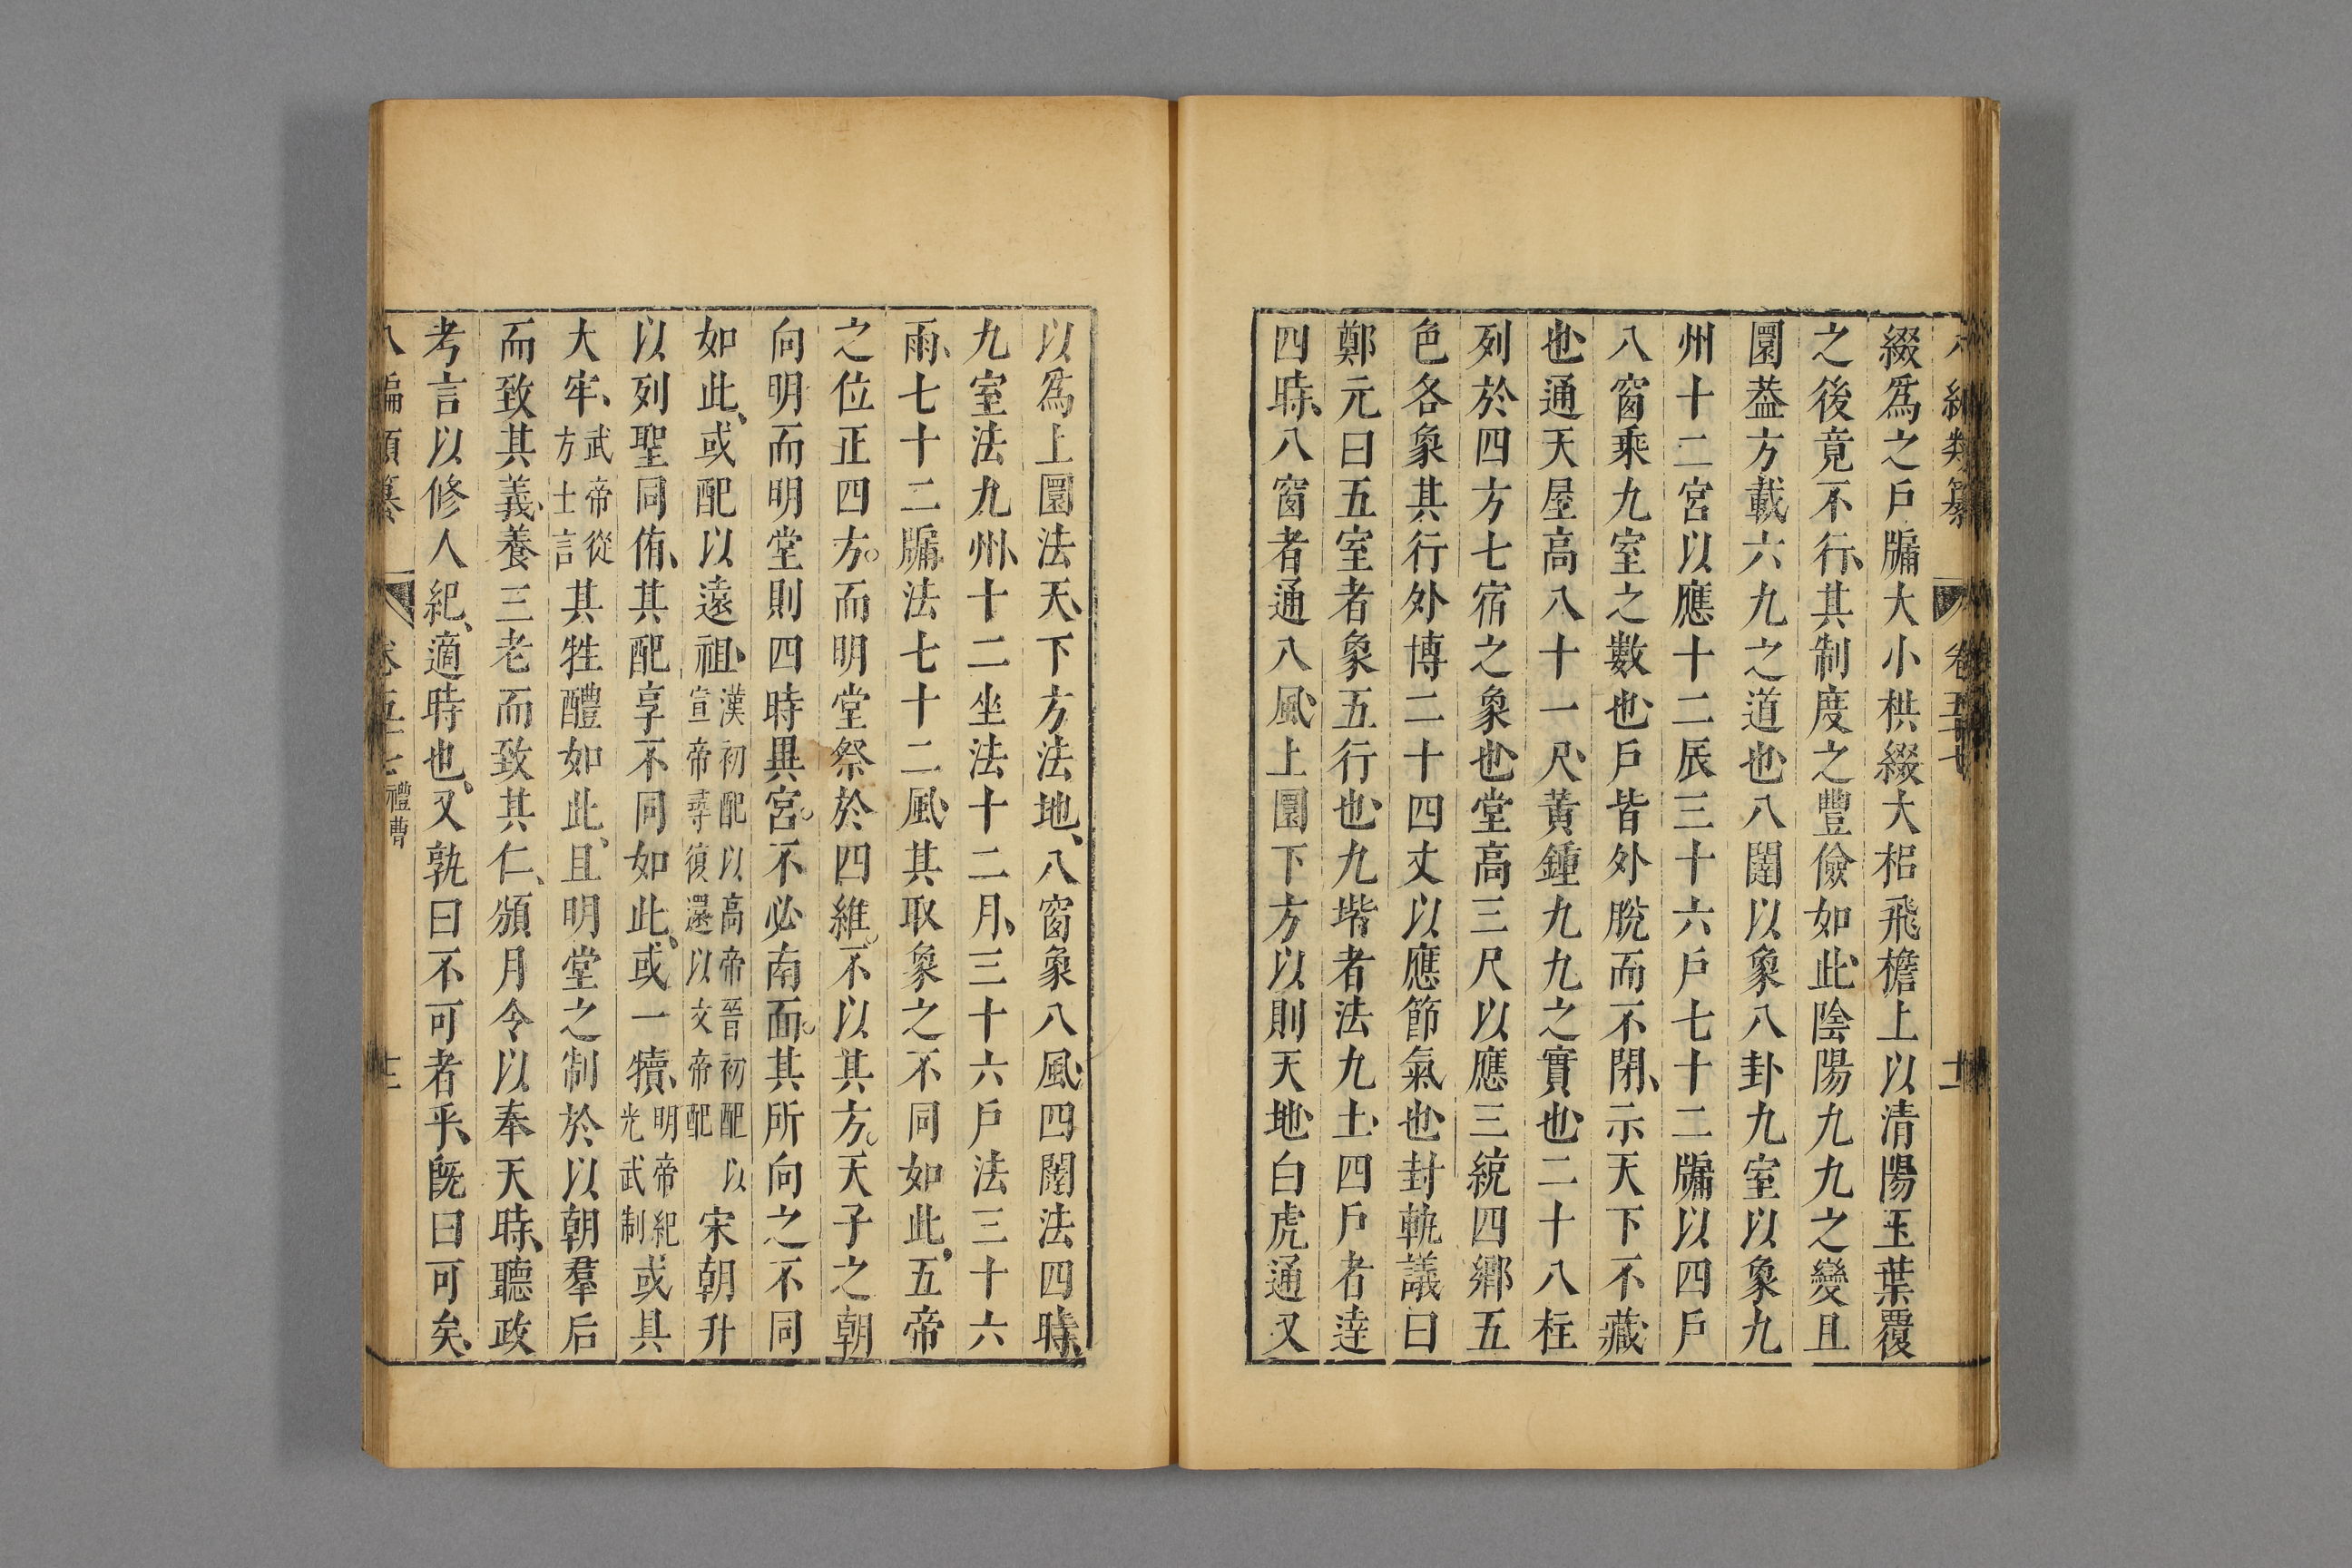 綴爲之戶牖大小栱綴大梠飛檐上以清陽玉葉覆
之後竟不行、其制度之豐儉如此、陰陽九九之變且
圜葢方載六九之道也、八闥以象八卦九室以象九
州十二宮以應十二辰三十六戶七十二牖以四戶
八窗乘九室之數也、戶皆外脫而不閉、示天下不藏、
也、通天屋高八十一尺、黃鍾九九之實也、二十八柱
列於四方七宿之象也、堂高三尺以應三統四鄉五
色各象其行外博二十四丈以應節氣也、封軌議曰
鄭元曰五室者象五行也、九堦者法九土、四戶者達
四時、八窗者通八風、上圜下方以則天地、白虎通又
以爲上圜法天、下方法地、八窗象八風、四闥法四時、
九室法九州、十二坐法十二月、三十六戶法三十六
雨、七十二牖法七十二風、其取象之不同如此、五帝
之位正四方。而明堂祭於四維。不以其方。天子之朝
向明而明堂則四時異宮。不必南面。其所向之不同
如此、或配以遠祖、漢初配以高帝晉初配以宣帝尋復還以文帝配宋朝升
以列聖同侑、其配享不同如此、或一犢、明帝紀光武制或具
大牢、武帝從方士言其牲醴如此、且明堂之制於以朝羣后
而致其義、養三老而致其仁、頒月令以奉天時、聽政
考言以修人紀、適時也、又孰曰不可者乎、旣曰可矣、
八編類纂 卷五十七 禮曹